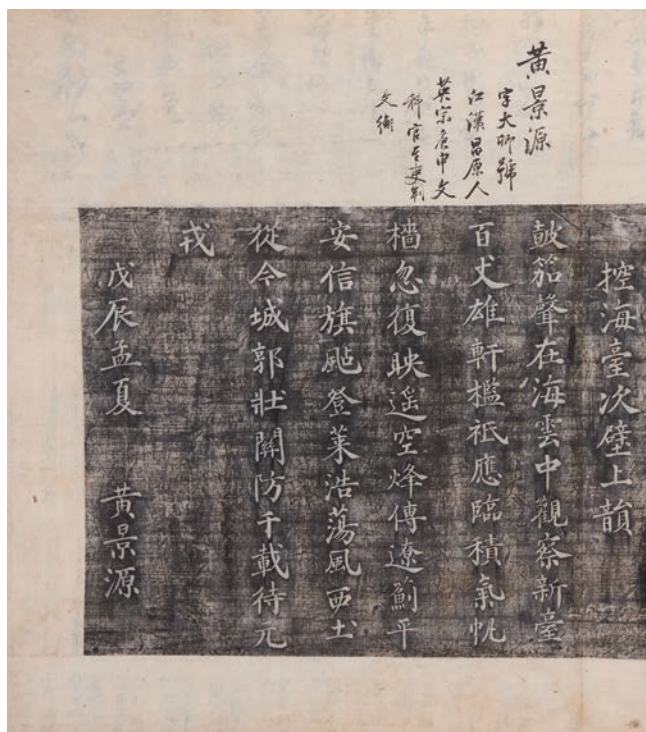 黃景源
字大卿號
江漢昌原人
英宗庚申文
科官至吏判
文衡
控海臺次壁上韻
皷笳聲在海雲中觀察新臺
百丈雄軒檻祇應臨積氣帆
檣忽復映遥空烽傳遼薊平
安信旗颭登萊浩蕩風西土
從今城郭壯關防千載待元
戎
戊辰孟夏 黃景源